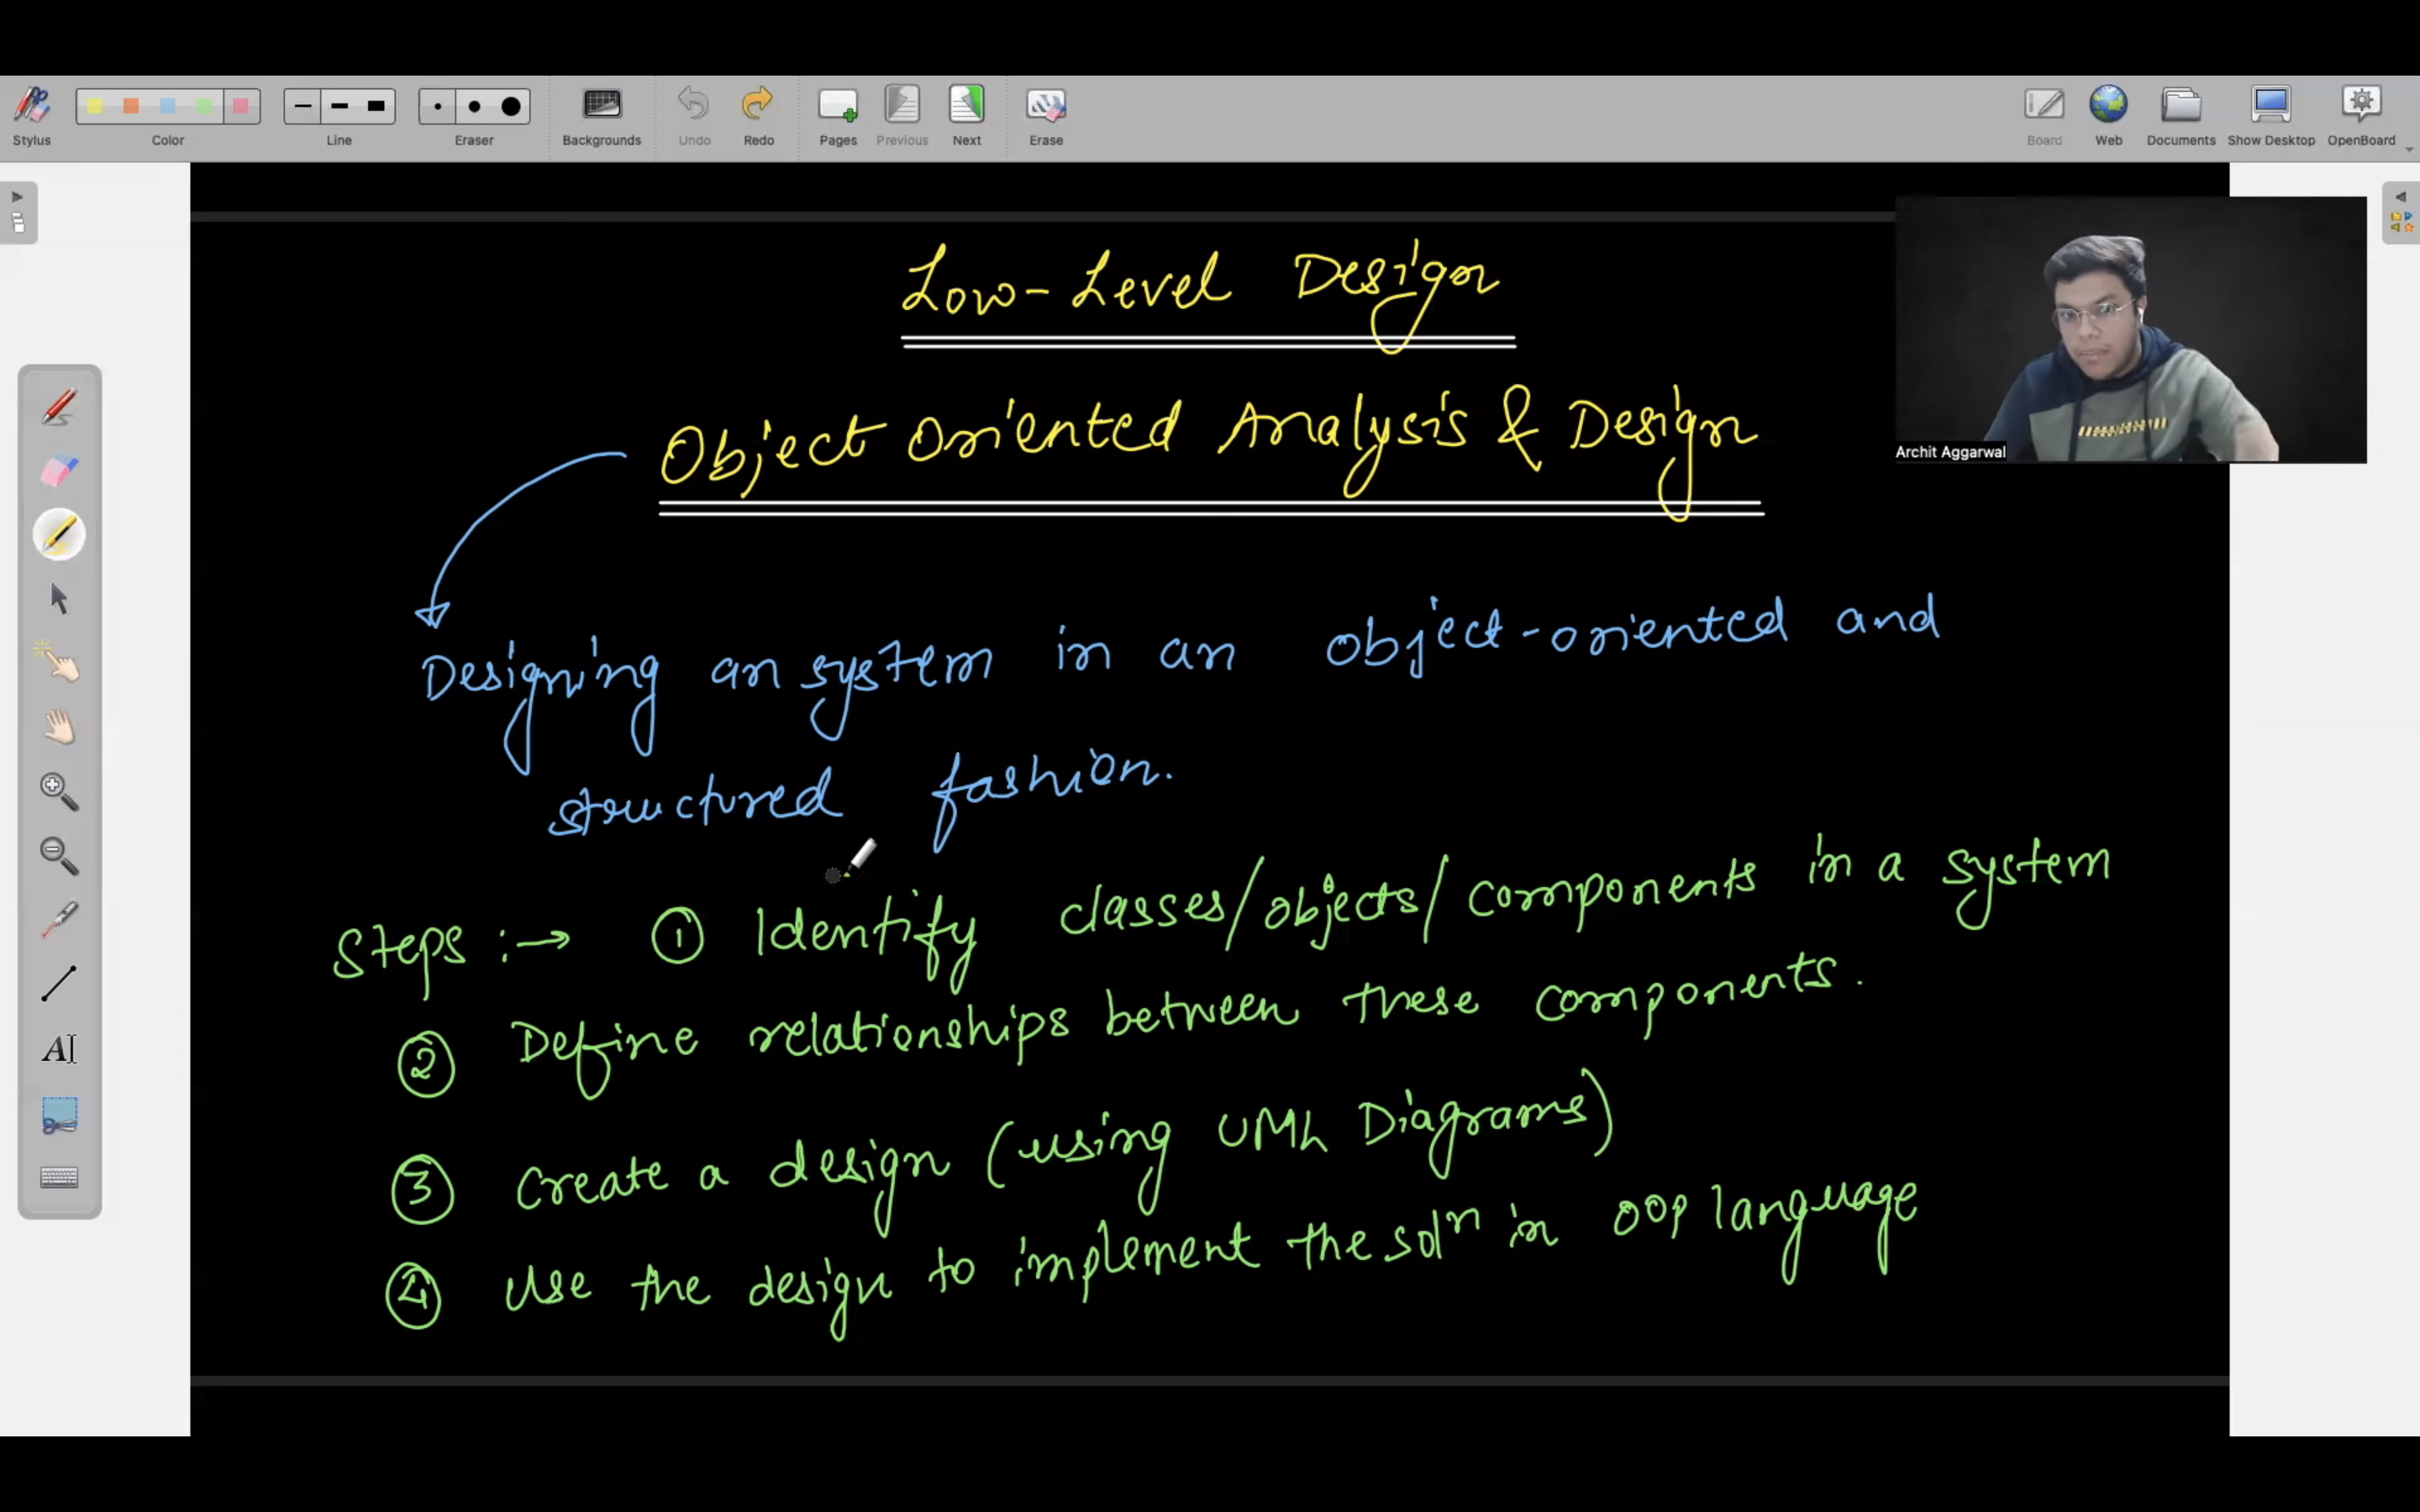 Stylus
Color
Line
Eraser
Backgrounds
Undo
Redo
Pages
Previous
Next
Erase
Board
Web
Documents
Show Desktop
OpenBoard
Low-Level Design
Object Oriented Analysis & Design
Archit Aggarwal
Designing an system in an object-oriented and
structured fashion.
Steps :→ ① Identify classes/objects/components in a system
② Define relationships between these components.
③ Create a design (using UML Diagrams)
④ Use the design to implement the solⁿ in OOP language